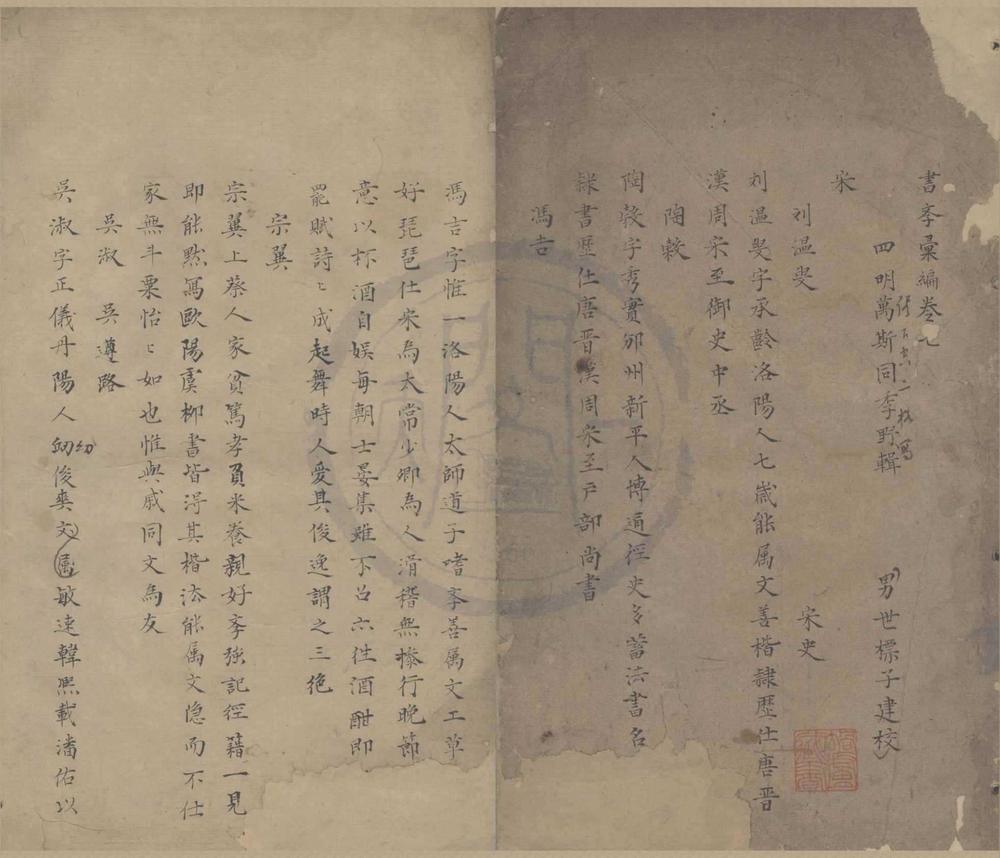 書李彙編卷七
四明萬斯同季野輯 男世標子建校
宋
刘温叟 宋史
刘温叟字承齡洛陽人七歲能属文善楷隸歷仕唐晋
漢周宋至御史中丞
陶穀
陶穀字秀實邠州新平人博通徑史多蓄法書名
隸書歷仕唐晋漢周宋至戸部尚書
馮吉
馮吉字惟一洛陽人太師道子嗜孝善属文工草
好琵琶仕宋為太常少卿為人滑稽無操行晚節
意以杯酒自娛每朝士宴集雖不召亦徃酒酣即
罷賦詩〻成起舞時人愛其俊逸謂之三絶
宗翼
宗翼上蔡人家貧篤孝負米養親好孝強記徑籍一見
即能黙寫歐陽虞柳書皆淂其楷法能属文隐而不仕
家無斗粟怡〻如也惟與戚同文為友
吳淑 吳遵路
吳淑字正儀丹陽人幼俊爽文属敏速韓熙載潘佑以